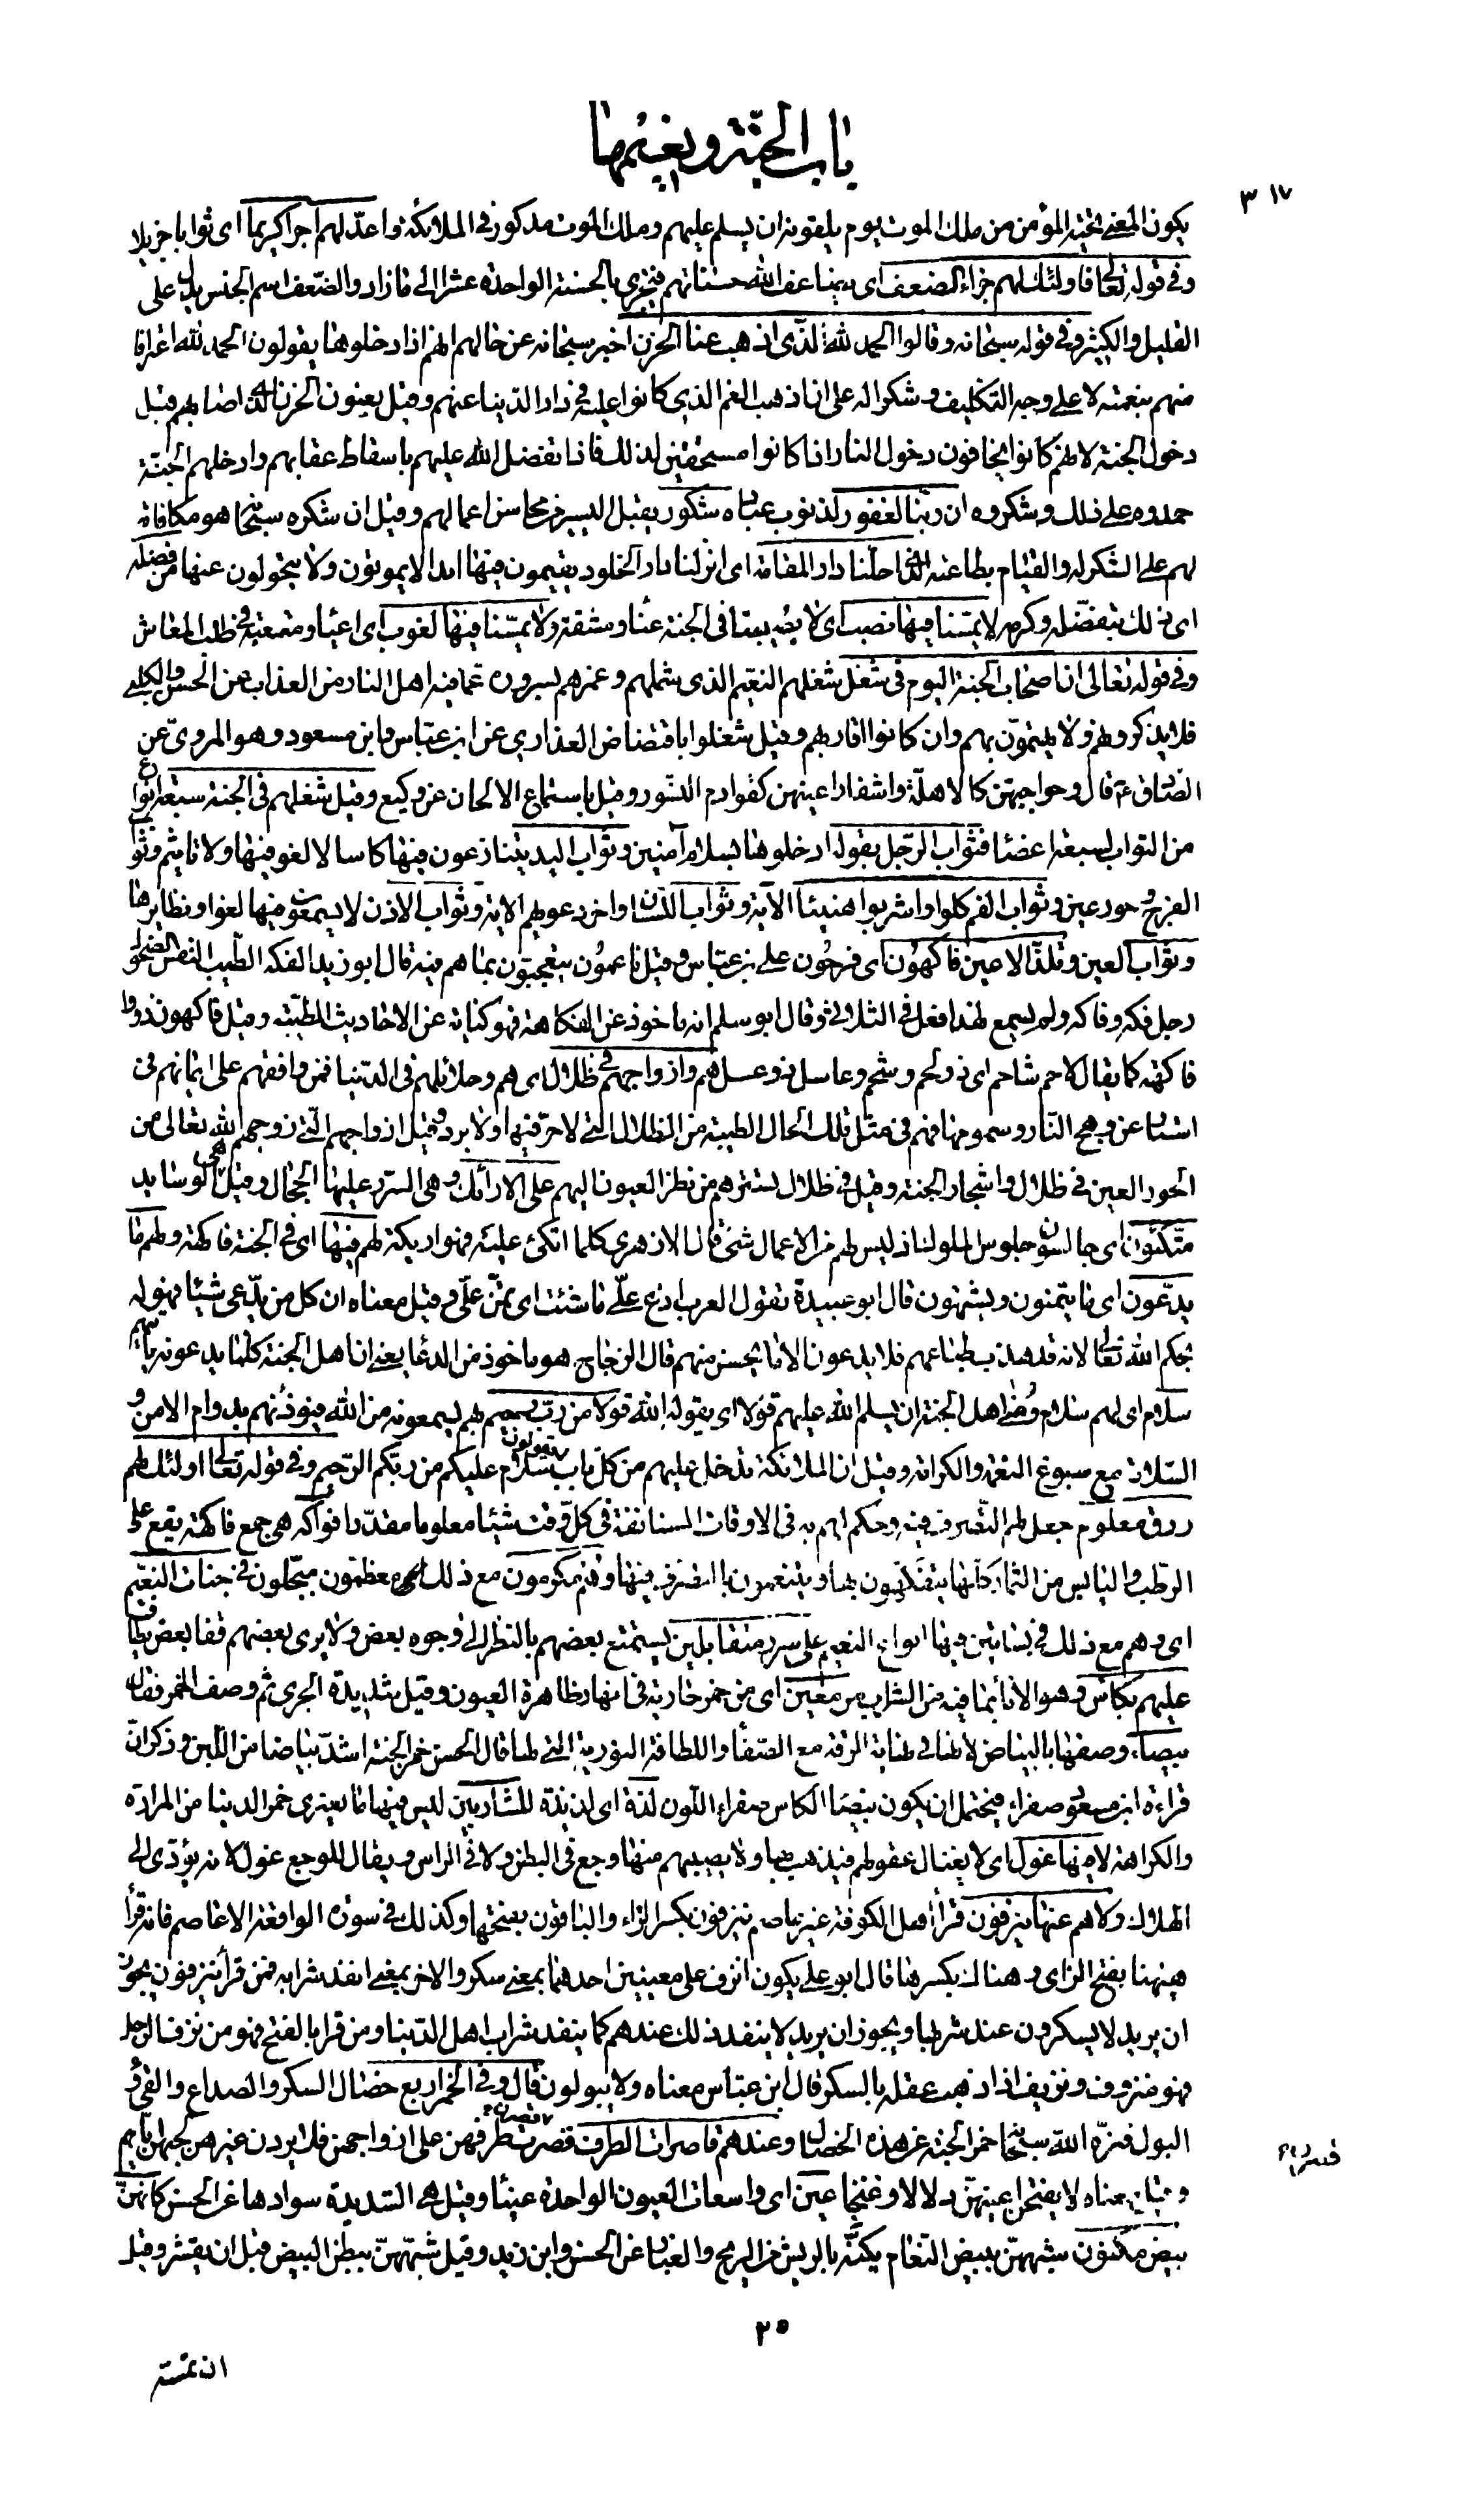 باب الجنّة ونعيمها
٣١٧
يكون المعنى تحية المؤمن من ملك الموت يوم يلقونه ان يسلم عليهم وملك الموت مذكور فى الملائكة واعدّ لهم اجرا كريما اى ثوابا جزيلا
وفى قوله تعالى فاولئك لهم جزاء الضعف اى يضاعف الله حسناتهم فيجزى بالحسنة الواحدة عشرا الى ما زاد والضّعف اسم الجنس يدل على
القليل والكثير وفى قوله سبحانه وقالوا الحمد لله الّذى اذهب عنا الحزن اخبر سبحانه عن حالهم انهم اذا دخلوها يقولون الحمد لله اعترافا
منهم بنعمته لا على وجه التكليف وشكرا له على ان اذهب الغم الذى كانوا عليه فى دار الدّنيا عنهم وقيل يعنون الحزن الذى اصابهم قبل
دخول الجنة لانهم كانوا يخافون دخول النار اذا كانوا مستحقين لذلك فاذا تفضل الله عليهم باسقاط عقابهم وادخلهم الجنّة
حمدوه على ذلك وشكروه ان ربّنا لغفور لذنوب عباده شكور يقبل اليسير من محاسن اعمالهم وقيل ان شكره سبحانه هو مكافاته
لهم على الشكر له والقيام بطاعته الذى احلّنا دار المقامة اى انزلنا دار الخلود يقيمون فيها ابدا لا يموتون ولا يتحولون عنها من فضله
اى ذلك بتفضّله وكرمه لا يمسّنا فيها نصب اى لا يصيبنا فى الجنة عناء ومشقة ولا يمسّنا فيها لغوب اى اعياء ومتعبة فى طلب المعاش
وفى قوله تعالى ان اصحاب الجنة اليوم فى شغل شغلهم النعيم الذى شملهم وغمرهم بسروره عما فيه اهل النار من العذاب عن الحسن والكلبى
فلا يذكرونهم ولا يهتمّون بهم وان كانوا اقاربهم وقيل شغلوا بافتضاض العذارى عن ابن عبّاس وابن مسعود وهو المروىّ عن
الصّادق ع قال وحواجبهنّ كالاهلّة واشفار اعينهن كقوادم النسور وقيل باستماع الالحان عن وكيع وقيل شغلهم فى الجنة سبعة انواع
من الثواب لسبعة اعضاء فثواب الرّجل بقوله ادخلوها بسلام آمنين وثواب اليد يتنازعون فيها كاسا لا لغو فيها ولا تاثيم وثواب
الفرج وحور عين وثواب الفم كلوا واشربوا هنيئا الآية وثواب اللّسان واخر دعويهم الآية وثواب الاذن لا يسمعون فيها لغوا ونظايرها
وثواب العين وتلذّ الاعين فاكهون اى فرحون عن ابن عبّاس وقيل ناعمون متعجّبون بما هم فيه قال ابو زيد الفكه الطّيب النفس الضحوك
رجل فكه وفاكه ولم يسمع لهذا فعل فى الثلاثى وقال ابو مسلم انه ماخوذ من الفكاهة فهو كناية عن الاحاديث الطيّبة وقيل فاكهون ذووا
فاكهة كما يقال لاحم شاحم اى ذو لحم وشحم وعاسل ذو عسل هم وازواجهم فى ظلال اى هم وحلائلهم فى الدّنيا فمن وافقهم على ايمانهم فى
استار عن وهج النّار وسمومها فهم فى مثل تلك الحال الطيبة من الظلال التى لا حرّ فيها ولا برد وقيل ازواجهم التى زوجهم الله تعالى من
الحور العين فى ظلال واشجار الجنة وقيل فى ظلال تسترهم من نظر العيون اليهم على الارائك وهى السرر عليها الحجال وقيل هى الوسايد
متّكئون اى جالسون جلوس الملوك اذ ليس لهم من الاعمال شىء قال الازهرى كلما اتّكئ عليه فهو اريكة لهم فيها اى فى الجنة فاكهة ولهم ما
يدّعون اى ما يتمنون ويشتهون قال ابو عبيدة تقول العرب ادع علىّ ما شئت اى تمنّ علىّ وقيل معناه ان كل من يدّعى شيئا فهو له
بحكم الله تعالى لانه قد هذّب طباعهم فلا يدعون الا ما يحسن منهم قال الزجاج هو ماخوذ من الدعاء يعنى ان اهل الجنة كلما يدعونه ياتيهم
سلام اى لهم سلام ومنى اهل الجنة ان يسلم الله عليهم قولا اى يقوله الله قولا من ربّ رحيم بهم يسمعونه من الله فيؤذنهم بدوام الامن و
السّلامة مع سبوغ النعمة والكرامة وقيل ان الملائكة تدخل عليهم من كلّ باب يقولون سلام عليكم من ربكم الرّحيم وفى قوله تعالى اولئك لهم
رزق معلوم جعل لهم التّصرف فيه وحكم لهم به فى الاوقات المستانفة فى كلّ وقت شيئا معلوما مقدّرا فواكه هى جمع فاكهة يقع على
الرّطب واليابس من الثمار كلّها يتفكّهون بها ويتنعمون بالتصرف فيها وهم مكرمون مع ذلك اى معظمون مبجّلون فى جنات النعيم
اى وهم مع ذلك فى بساتين فيها انواع النعيم على سرر متقابلين يستمتع بعضهم بالنظر الى وجوه بعض ولا يرى بعضهم قفا بعض يطاف
عليهم بكأس وهو الاناء بما فيه من الشراب من معين اى من خمر جارية فى انهار ظاهرة العيون وقيل شديدة الجرى ثم وصف الخمر فقال
بيضاء وصفها بالبياض لانها فى نهاية الرقة مع الصّفاء واللطافة النورية التى لها قال الحسن خمر الجنة اشدّ بياضا من اللّبن وذكر انّ
قراءة ابن مسعود صفراء فيحتمل ان يكون بيضاء الكاس صفراء اللّون لذّة اى لذيذة للشّاربين ليس فيها ما يعترى خمر الدنيا من المرارة
والكراهة لا فيها غول اى لا يغتال عقولهم فيذهب بها ولا يصيبهم منها وجع فى البطن ولا فى الراس ويقال للوجع غول لانه يؤدّى الى
الهلاك ولا هم عنها ينزفون قرأ اهل الكوفة غير عاصم ينزفون بكسر الزاء والباقون بفتحها وكذلك فى سورة الواقعة الا عاصم فانه قرأ
هيهنا بفتح الزاى وهناك بكسرها قال ابو على يكون انزف على معنيين احدهما بمعنى سكر والاخر بمعنى انفد شرابه فمن قرأ ينزفون يجوز
ان يريد لا يسكرون عند شربها ويجوز ان يريد لا ينفد ذلك عندهم كما ينفد شراب اهل الدّنيا ومن قرا بالفتح فهو من نزف الرجل
فهو منزوف ونزيف اذا ذهب عقله بالسكر قال ابن عبّاس معناه ولا يبولون قال وفى الخمر اربع خصال السكر والصداع والقىء و
البول فنزّه الله سبحانه خمر الجنة عن هذه الخصال وعندهم قاصرات الطرف قصرن طرفهن على ازواجهن فلا يردن غيرهم لحبهن اياهم
وقيل معناه لا يفتحن اعينهنّ دلالا وغنجا عين اى واسعات العيون الواحدة عيناء وقيل هى الشديدة سوادها عن الحسن كانهنّ
بيض مكنون شبههنّ ببيض النعام يكنّه بالريش من الريح والغبار عن الحسن وابن زيد وقيل شبّههنّ ببطن البيض قبل ان يقشر وقبل
٢٥
ان تمسّه